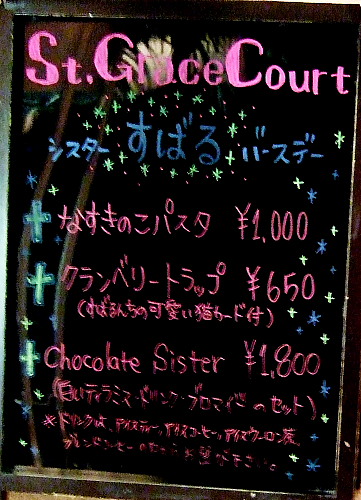 St.GraceCourt
シスター すばる バースデー
なすきのこパスタ ¥1,000
クランベリートラップ ¥650
(すばるんちの可愛い猫カード付)
Chocolate Sister ¥1,800
(白いティラミス・ドリンク・ブロマイドのセット)
※ドリンクは、アイスティー、アイスコーヒー、アイスウーロン茶、
ブレンドコーヒー